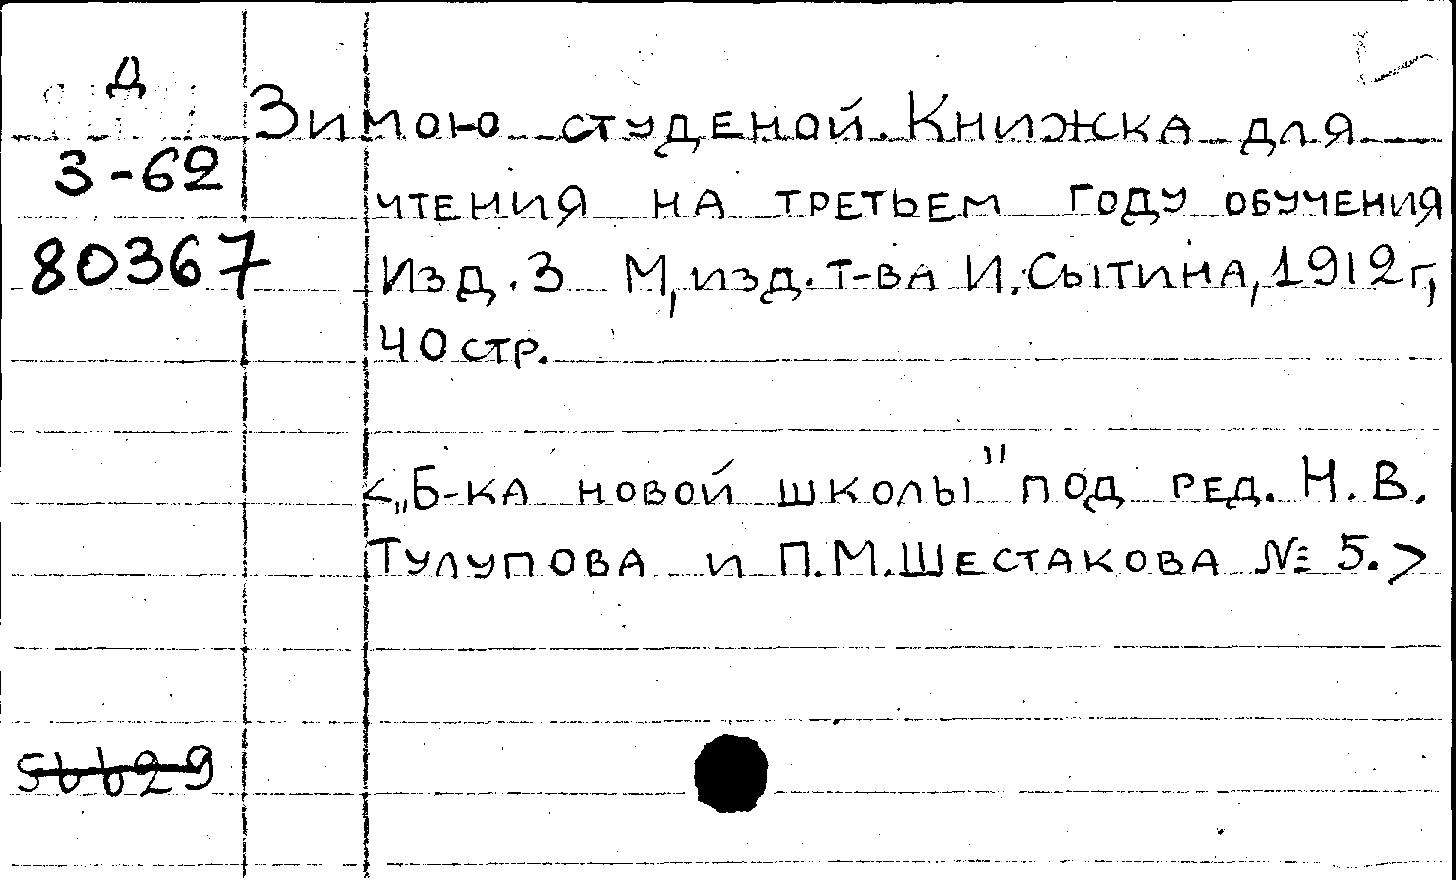 Д
З-62
80367
Зимою студеной. Книжка для
чтения на третьем году обучения
Изд. 3 М, изд. т-ва И. Сытина, 1912 г,
40 стр.
<„Б-ка новой школы" под ред. Н. В.
Тулупова и П.М. Шестакова № 5.>
56629